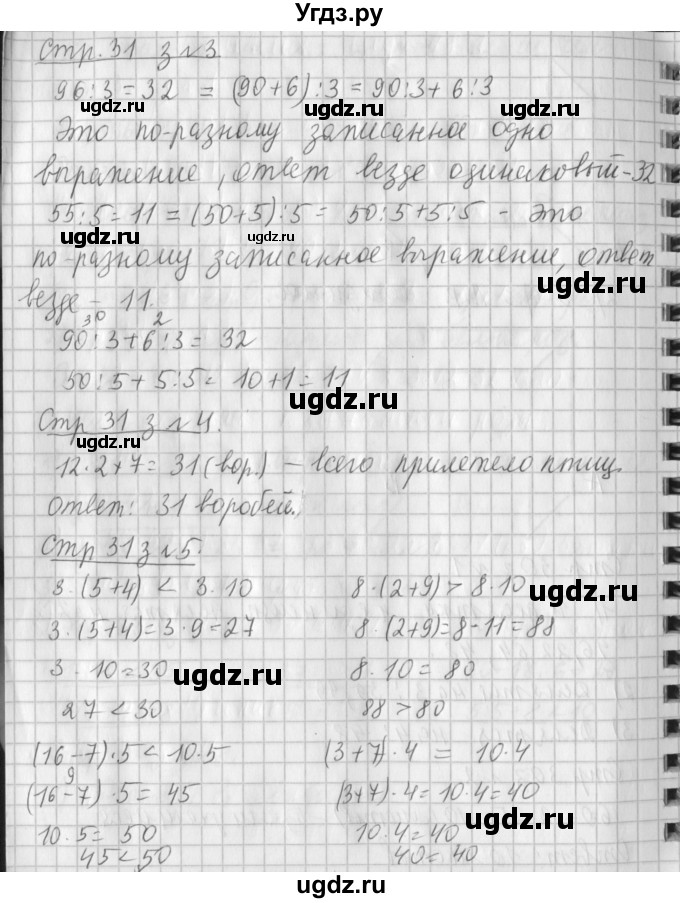 Угдз.ру
Стр. 31 з №3
96:3=32 = (90+6):3=90:3+6:3
ugdz.ru ugdz.ru ugdz.ru
Это по-разному записанное одно
выражение, ответ везде одинаковый-32
ugdz.ru ugdz.ru
55:5=11=(50+5):5= 50:5+5:5 - это
ugdz.ru
по-разному записанное выражение, ответ
ugdz.ru
везде - 11.
30 2
90:3+6:3= 32
ugdz.ru
50:5+5:5= 10+1=11
ugdz.ru
Стр 31 з №4.
ugdz.ru
12·2+7=31(вор.) - всего прилетело птиц.
Ответ: 31 воробей.
ugdz.ru
Стр 31 з №5.
3·(5+4) < 3·10 8·(2+9) > 8·10
ugdz.ru
3·(5+4)=3·9=27 8·(2+9)=8-11=88
3·10=30 8·10= 80
ugdz.ru
27<30 88>80
(16-7)·5<10·5 (3+7)·4 = 10·4
9
(16-7)·5= 45 (3+7)·4=10·4=40
ugdz.ru
10·5= 50 10·4=40
ugdz.ru
45<50 40=40
ugdz.ru